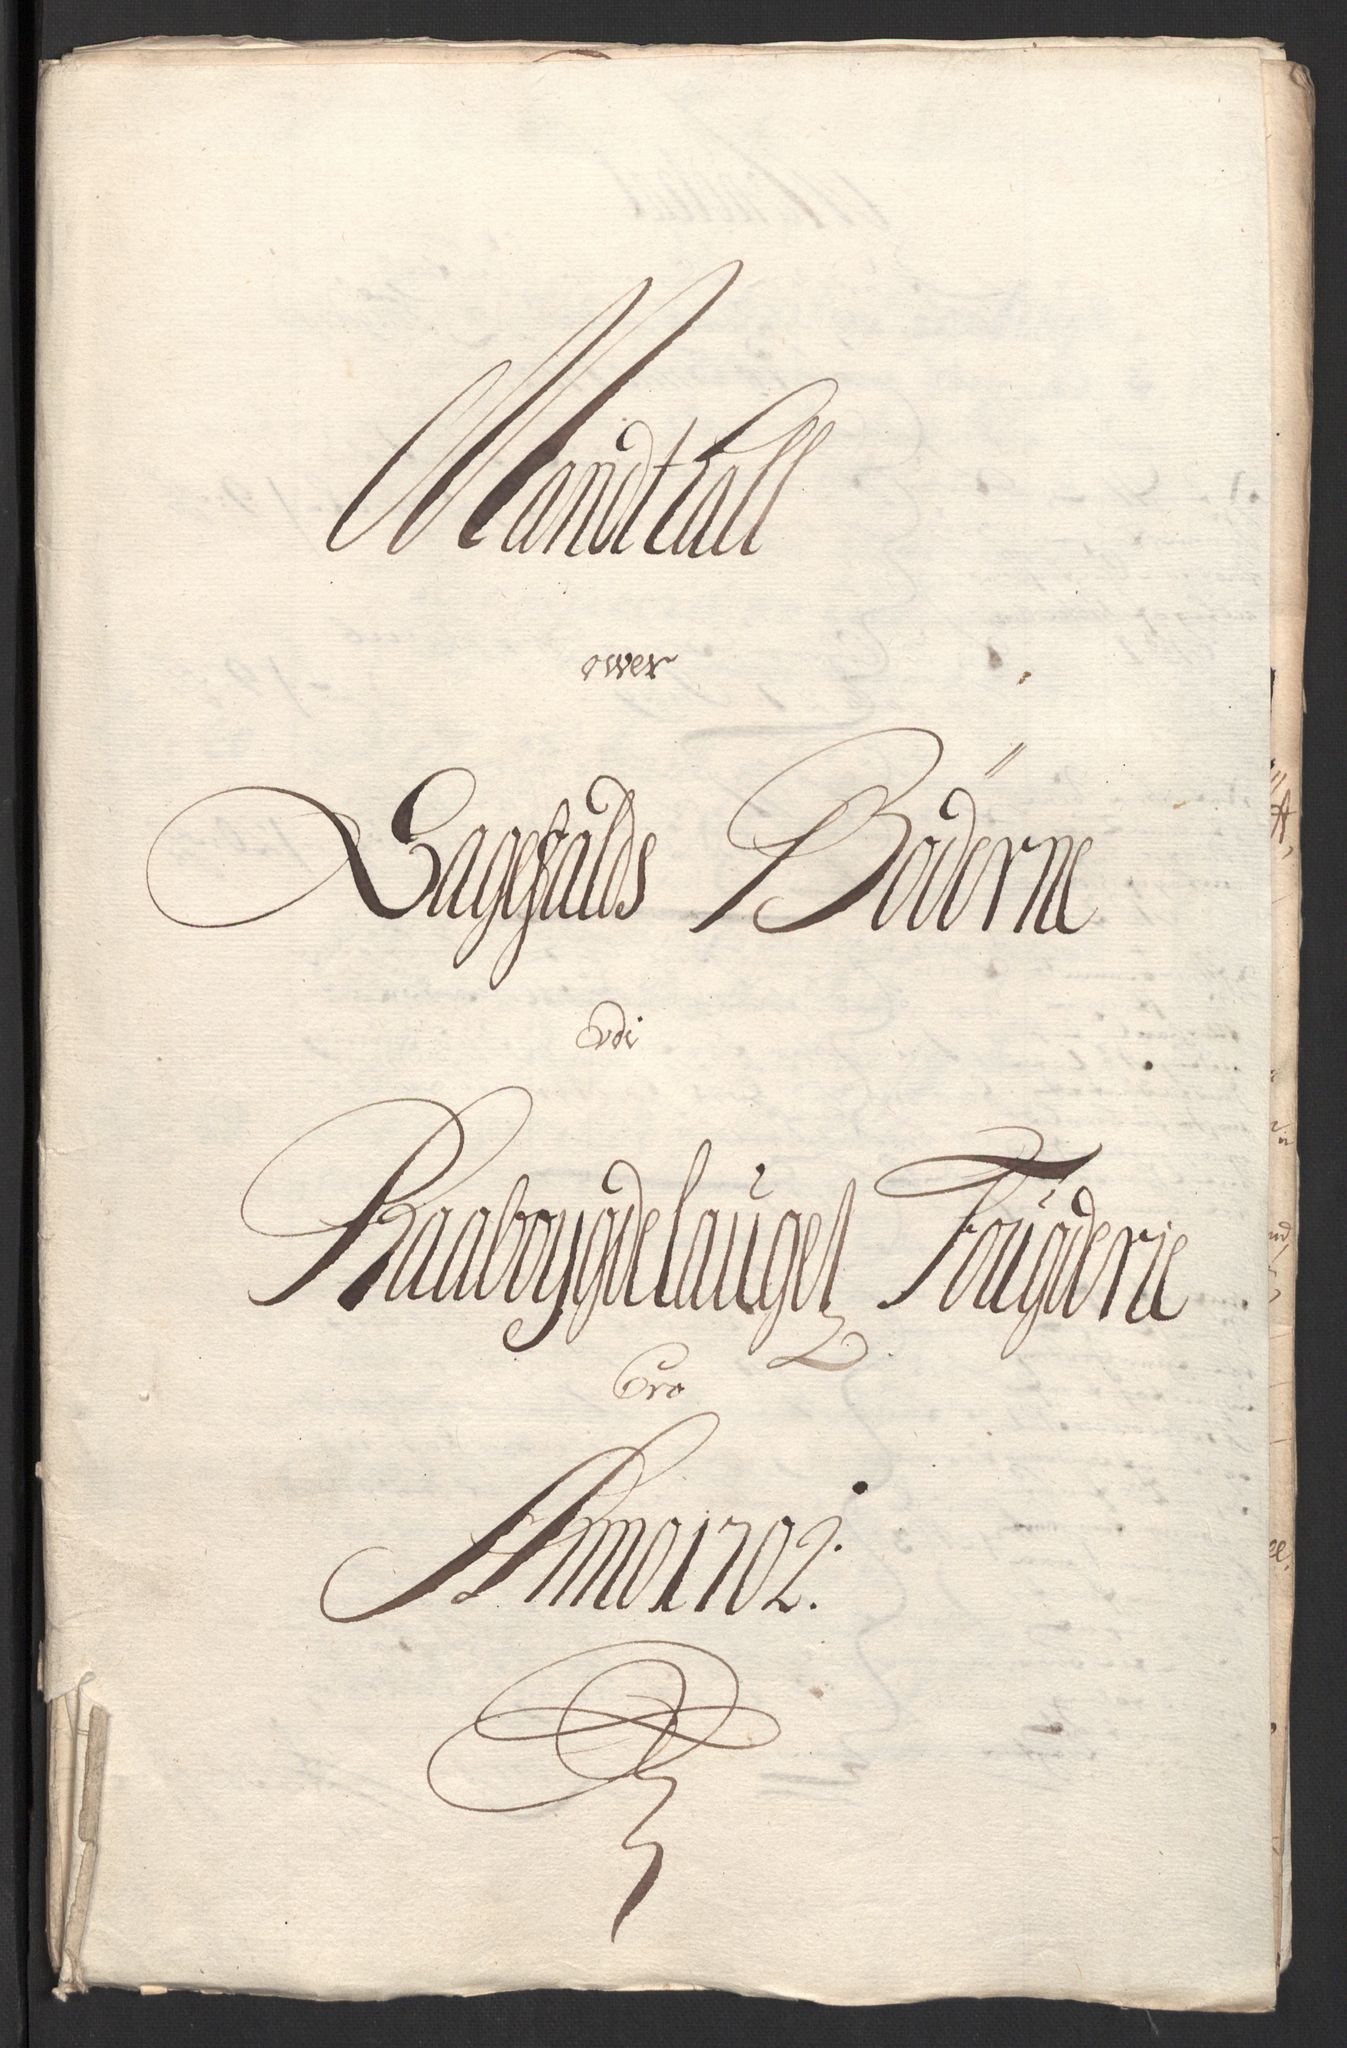 Mandtall
ower
Sagefalds Böderne
vdi
Raaboygdelauget Fougderie
Pro
Anno 1702.